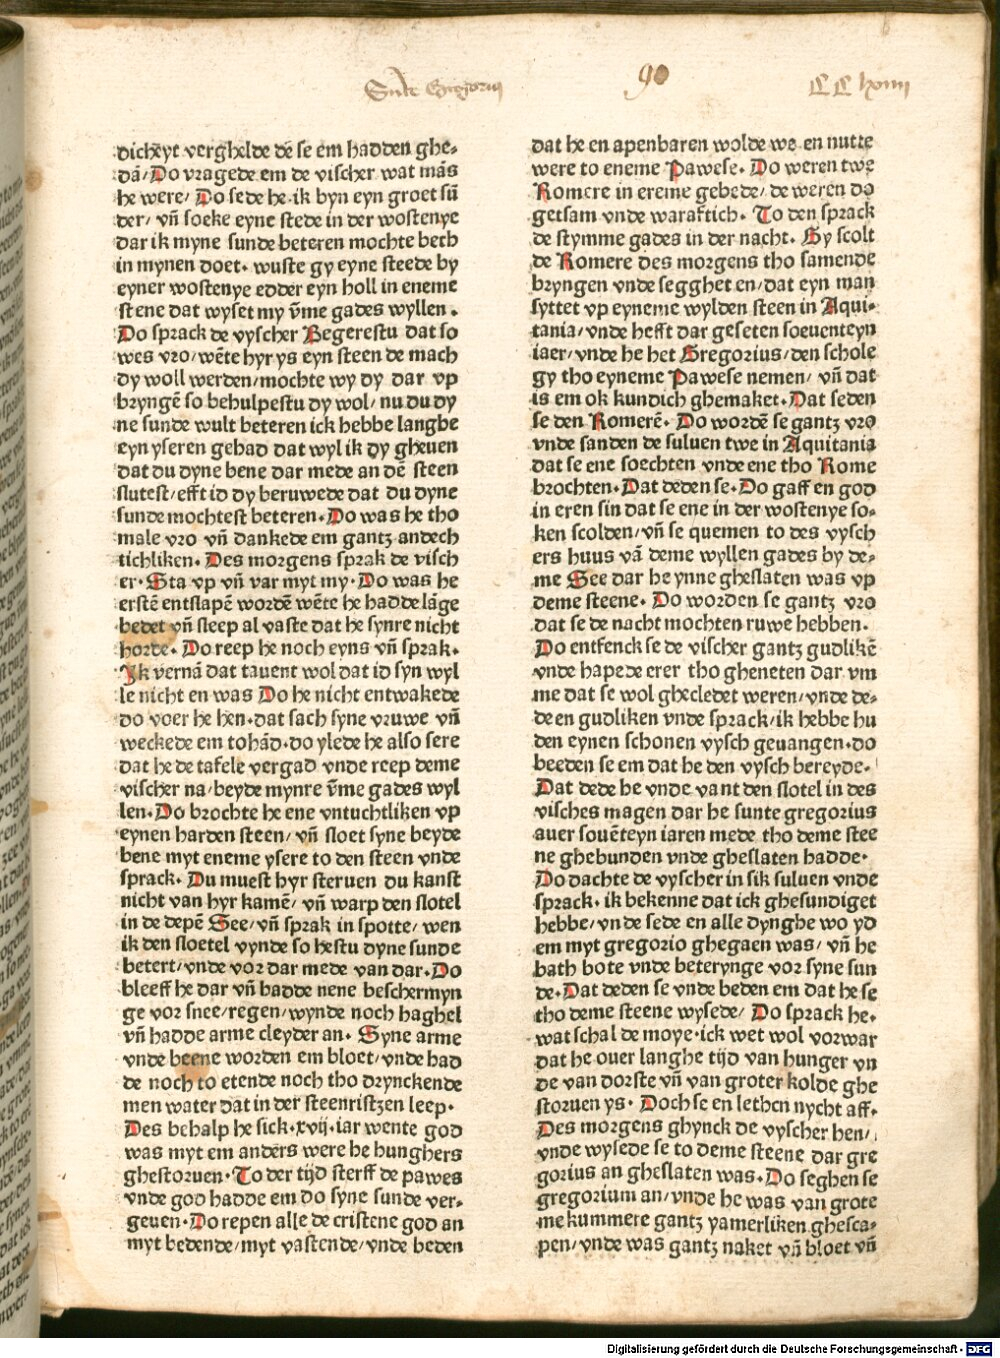 Sūte Gregorius
90
CC lxiiii
dicheyt verghelde dē se em hadden ghe⸗
dā/ Do vragede em de vischer wat mās
he were/ Do sede he·ik byn eyn groet sū
der/ vn̄ soeke eyne stede in der wostenye
dar ik myne sunde beteren mochte beth
in mynen doet· wuste gy eyne steede by
eyner wostenye edder eyn holl in eneme
stene dat wyset my v̄me gades wyllen·
Do sprack de vyscher Begerestu dat so
wes vro/ wēte hyr ys eyn steen de mach
dy woll werden/mochte wy dy dar vp
bryngē so behulpestu dy wol/ nu du dy
ne sunde wult beteren ick hebbe langhe
eyn yseren gehad dat wyl ik dy gheuen
dat du dyne bene dar mede an dē steen
slutest/efft id dy beruwede dat du dyne
sunde mochtest beteren·Do was he tho
male vro vn̄ dankede em gantz andech
tichliken· Des morgens sprak de visch
er·Sta vp vn̄ var myt my·Do was he
erstē entslapē wordē wēte he hadde lāge
bedet vn̄ sleep al vaste dat he synre nicht
horde· Do reep he noch eyns vn̄ sprak·
Yk vernā dat tauent wol dat id syn wyl
le nicht en was Do he nicht entwakede
do voer he hen·dat sach syne vruwe vn̄
weckede em tohād·do ylede he also sere
dat he de tafele vergad vnde reep deme
vischer na/beyde mynre v̄me gades wyl
len·Do brochte he ene vntuchtliken vp
eynen harden steen/ vn̄ sloet syne beyde
bene myt eneme ysere to den steen vnde
sprack· Du muest hyr steruen du kanst
nicht van hyr kamē/ vn̄ warp den slotel
in de depē See/ vn̄ sprak in spotte/ wen
ik den sloetel vynde so hestu dyne sunde
betert/vnde vor dar mede van dar·Do
bleeff he dar vn̄ hadde nene beschermyn
ge vor snee/regen/wynde noch haghel
vn̄ hadde arme cleyder an· Syne arme
vnde beene worden em bloet/vnde had
de noch to etende noch tho drynckende
men water dat in der steenristzen leep·
Des behalp he sick·xvij·iar wente god
was myt em anders were he hunghers
ghestoruen·To der tijd sterff de pawes
vnde god hadde em do syne sunde ver⸗
geuen·Do repen alle de cristene god an
myt bedende/myt vastende/vnde beden
dat he en apenbaren wolde we en nutte
were to eneme Pawese· Do weren twe
Romere in ereme gebede/de weren do
getsam vnde waraftich· To den sprack
de stymme gades in der nacht· Gy scolt
de Romere des morgens tho samende
bryngen vnde segghet en/dat eyn man
syttet vp eyneme wylden steen in Aqui⸗
tania/vnde hefft dar geseten soeuenteyn
iaer/vnde he het Gregorius/den schole
gy tho eyneme Pawese nemen/ vn̄ dat
is em ok kundich ghemaket·Dat seden
se den Romerē· Do wordē se gantz vro
vnde sanden de suluen twe in Aquitania
dat se ene soechten vnde ene tho Rome
brochten·Dat deden se·Do gaff en god
in eren sin dat se ene in der wostenye so⸗
ken scolden/vn̄ se quemen to des vysch
ers huus vā deme wyllen gades by de⸗
me See dar he ynne gheslaten was vp
deme steene· Do worden se gantz vro
dat se de nacht mochten ruwe hebben·
Do entfenck se de vischer gantz gudlikē
vnde hapede erer tho gheneten dar vm
me dat se wol ghecledet weren/vnde de⸗
de en gudliken vnde sprack/ik hebbe hu
den eynen schonen vysch geuangen·do
beeden se em dat he den vysch bereyde·
Dat dede he vnde vant den slotel in des
visches magen dar he sunte gregorius
auer souēteyn iaren mede tho deme stee
ne ghebunden vnde gheslaten hadde·
Do dachte de vyscher in sik suluen vnde
sprack· ik bekenne dat ick ghesundiget
hebbe/vnde sede en alle dynghe wo yd
em myt gregorio ghegaen was/ vn̄ he
bath bote vnde beterynge vor syne sun
de·Dat deden se vnde beden em dat he se
tho deme steene wysede/ Do sprack he·
wat schal de moye·ick wet wol vorwar
dat he ouer langhe tijd van hunger vn
de van dorste vn̄ van groter kolde ghe
storuen ys· Doch se en lethen nycht aff·
Des morgens ghynck de vyscher hen/
vnde wysede se to deme steene dar gre
gorius an gheslaten was·Do seghen se
gregorium an/vnde he was van grote
me kummere gantz yamerliken ghesca⸗
pen/vnde was gantz naket vn̄ bloet vn̄
Digitalisierung gefördert durch die Deutsche Forschungsgemeinschaft - DFG